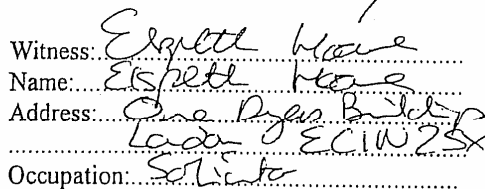 Witness: Elspeth Hoare
Name: Elspeth Hoare
Address: One Dyers Buildings
London EC1N 2SX
Occupation: Solicitor